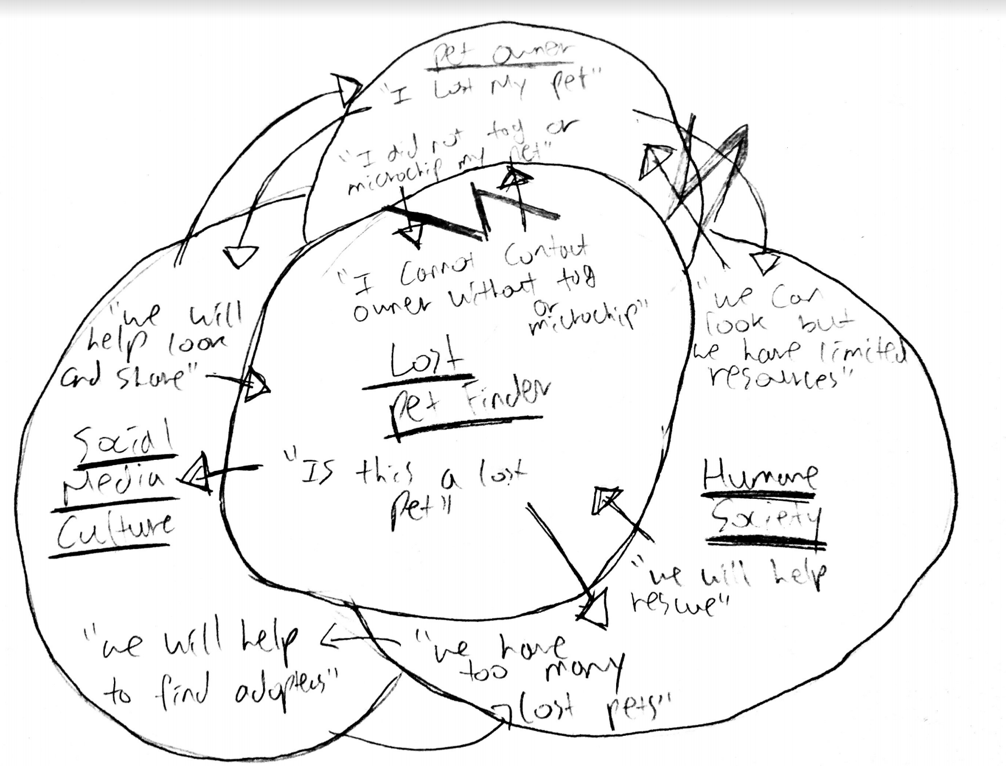 Pet Owner
"I Lost My pet"
"I did not tag or
microchip my pet"
"I Cannot Contact
owner without tag
or
microchip"
Lost
Pet Finder
"Is this a lost
Pet"
"we will
help look
and share"
Social
Media
Culture
"we will help
to find adopters"
"we can
look but
we have limited
resources"
Humane
Society
"we will help
rescue"
"we have
too many
lost pets"